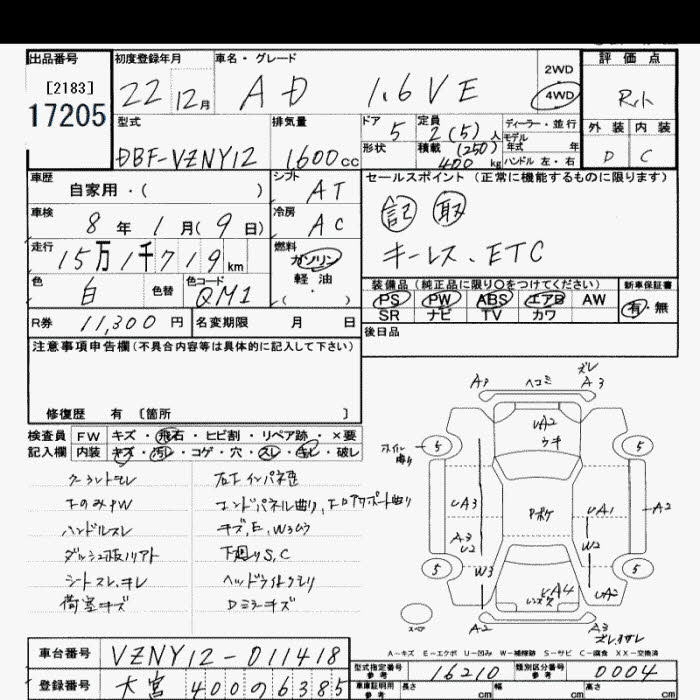 出品番号 初度登録年月 車名・グレード 2WD 評価点
[2183] 22 12月 AD 1.6VE 4WD
17205 外装 内装
D C
型式 排気量 ドア 5 定員 2(5)人 ディーラー・並行
モデル年式 年
DBF-VZNY12 1600cc 形状 積載 (250) 400kg ハンドル 左・右
車歴 自家用・( ) シフト AT セールスポイント (正常に機能するものに限ります)
車検 8年1月(9日) 冷房 AC 記 取
走行 15万1千719km 燃料 ガソリン キーレス、ETC
軽油
・( )
色 白 色替 色コード QM1
装備品 (純正品に限り○をつけてください) 新車保証書
PS PW ABS エアB AW 有・無
SR ナビ TV カワ
R券 11,300円 名変期限 月 日
後日品
注意事項申告欄(不具合内容等は具体的に記入して下さい)
修復歴 有 〔箇所 〕
検査員 FW キズ・飛石・ヒビ割・リペア跡・×要
記入欄 内装 キズ・汚レ・コゲ・穴・スレ・キレ・破レ
ハンドルスレ キズ,E,W3ムラ
下廻りS,C
シートスレ、キレ ヘッドライトクモリ
荷室キズ Dミラーキズ
A3 ヘコミ ズレ A3
ホイル曲り 5 UA2 ウキ 5
UA3 Pボケ UA1 A2
A3 U2 W2
5 W3 UA4 UA2 5
スペア A2 A3
A-キズ E-エクボ U-凹み W-補修跡 S-サビ C-腐食 XX-交換済
車台番号 VZNY12-011418
型式指定番号 参考 16210 類別区分番号 参考 0004
登録番号 大宮 400 の 6385
車庫証明用 参考 長さ cm 幅 cm 高さ cm